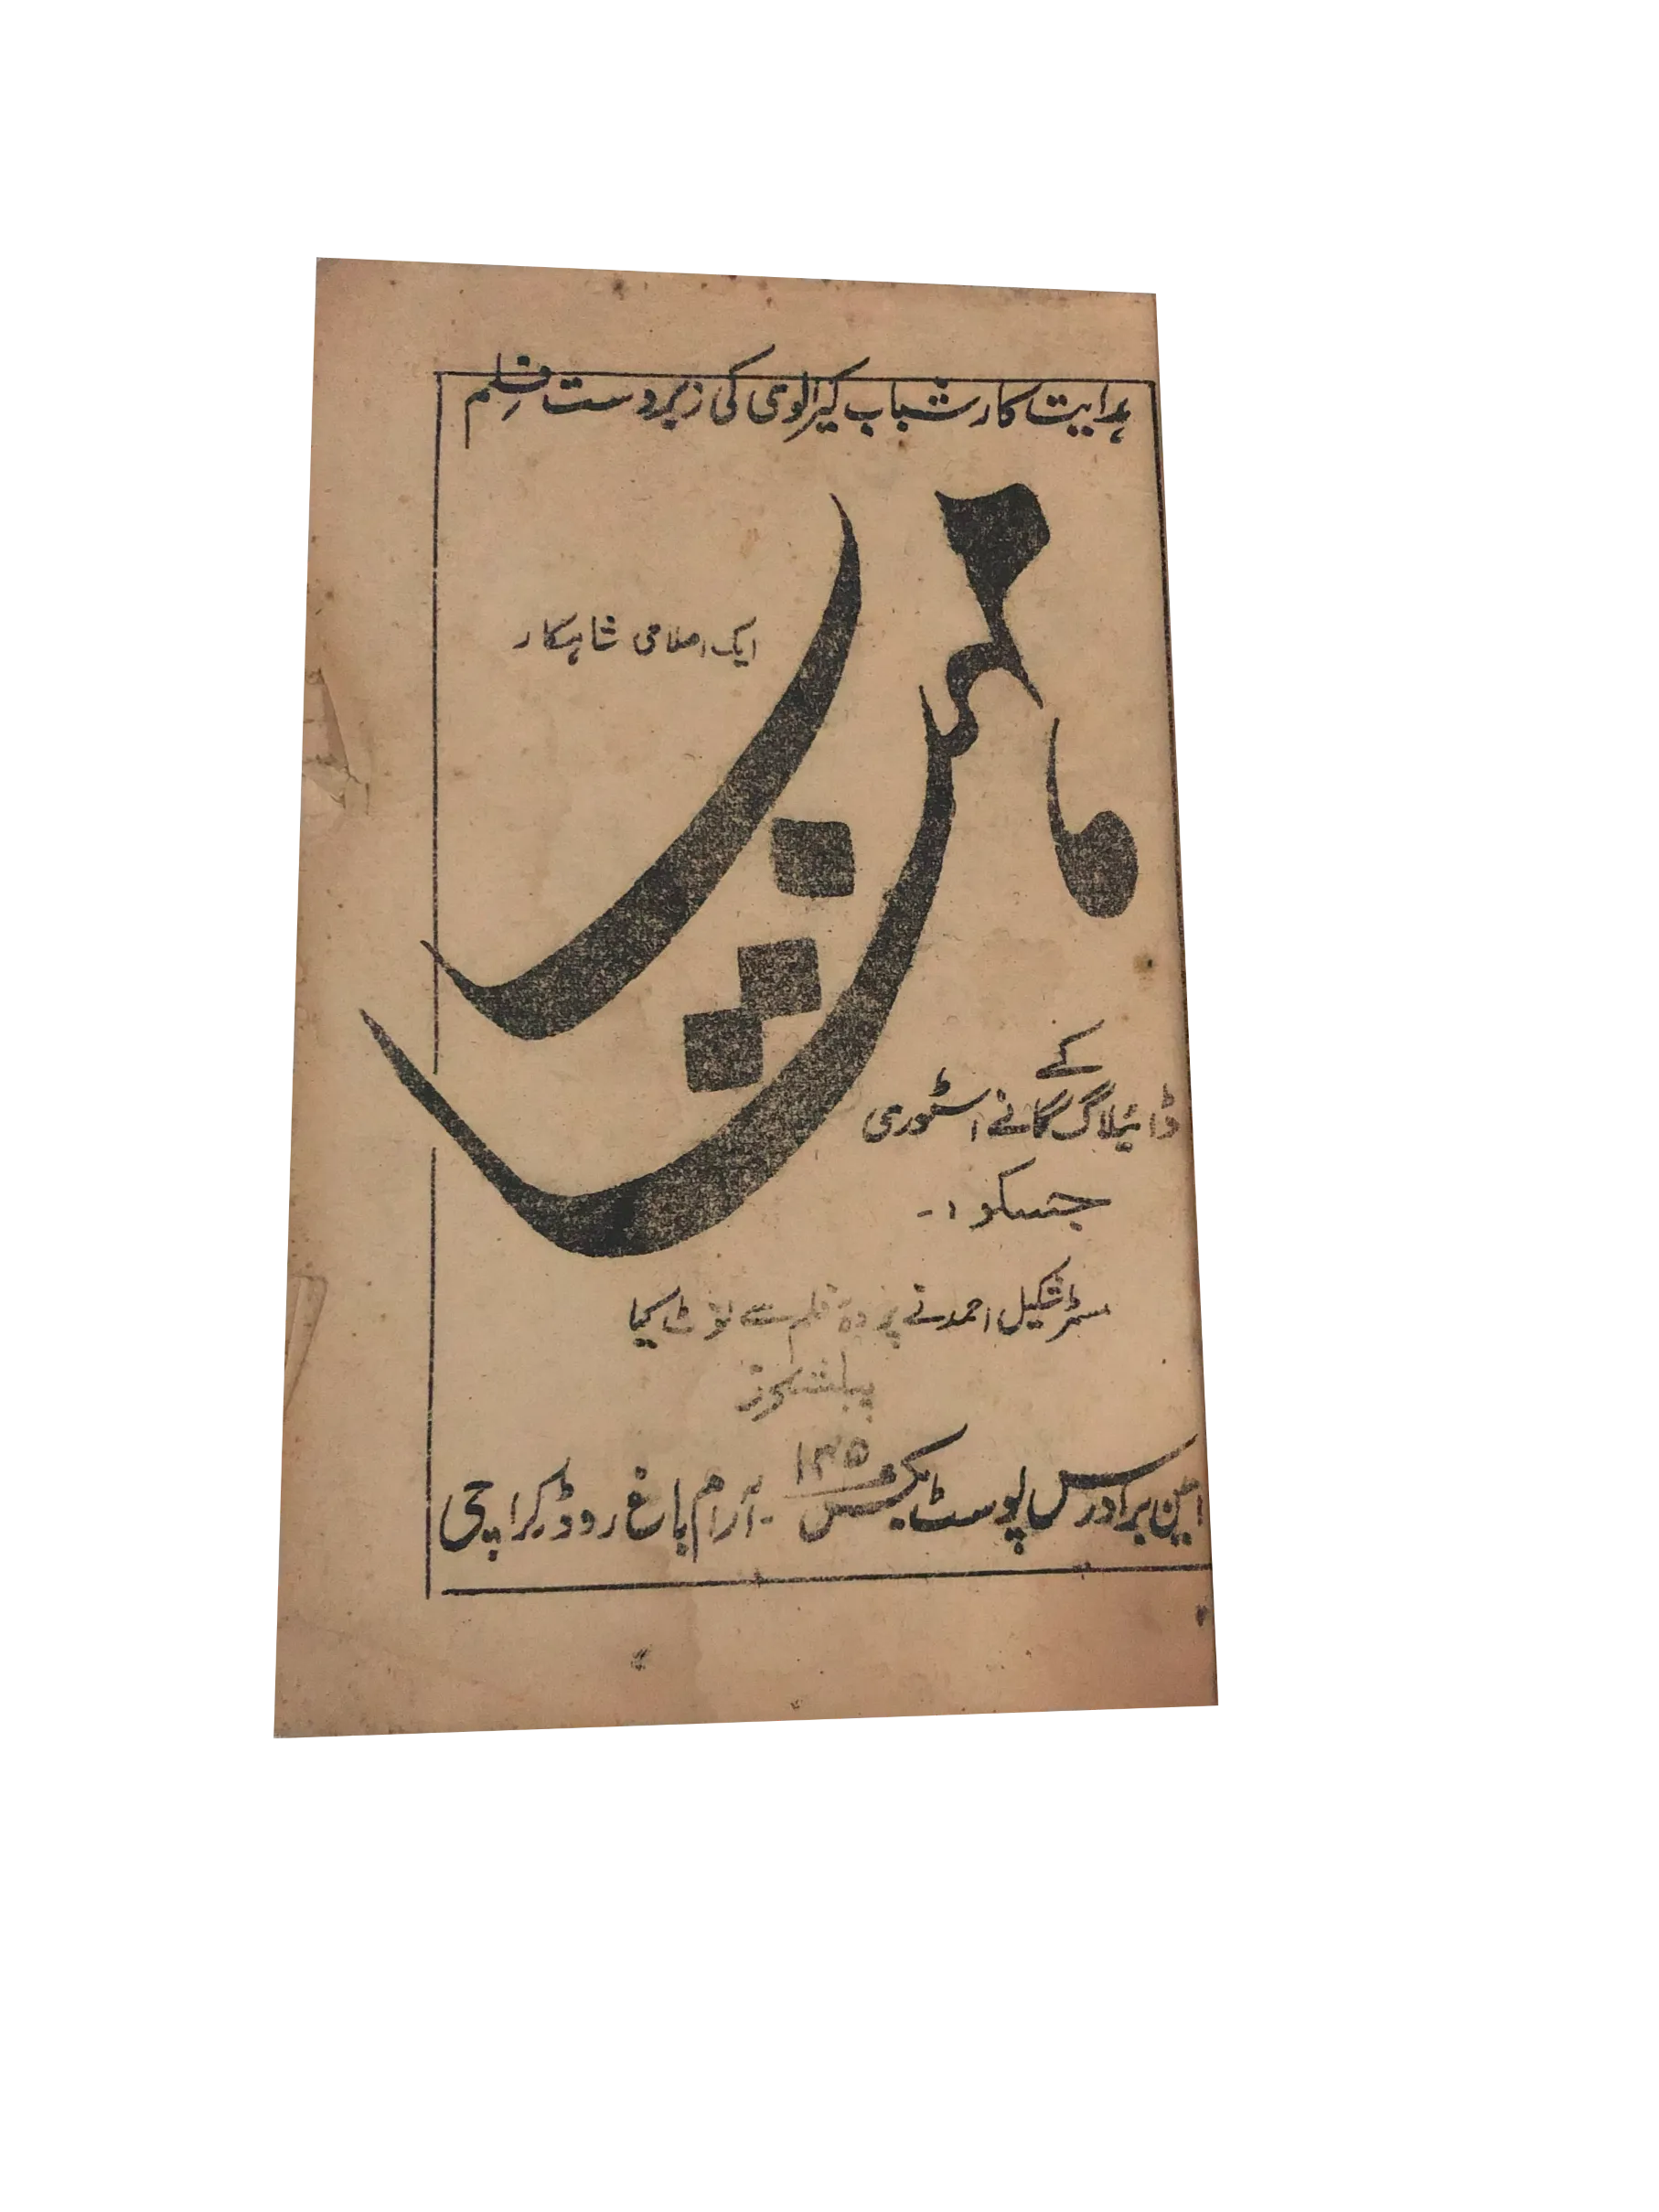 ہدایت کار شباب کیرالوی کی زبردست فلم
ایک اصلاحی شاہکار
کے
ڈائیلاگ گانے اسٹوری
جسکو :-
مسٹر شکیل احمد نے پردۂ فلم سے نوٹ کیا
پبلشرز
امین برادرس پوسٹ بکس ۱۳۵ - آرام باغ روڈ کراچی